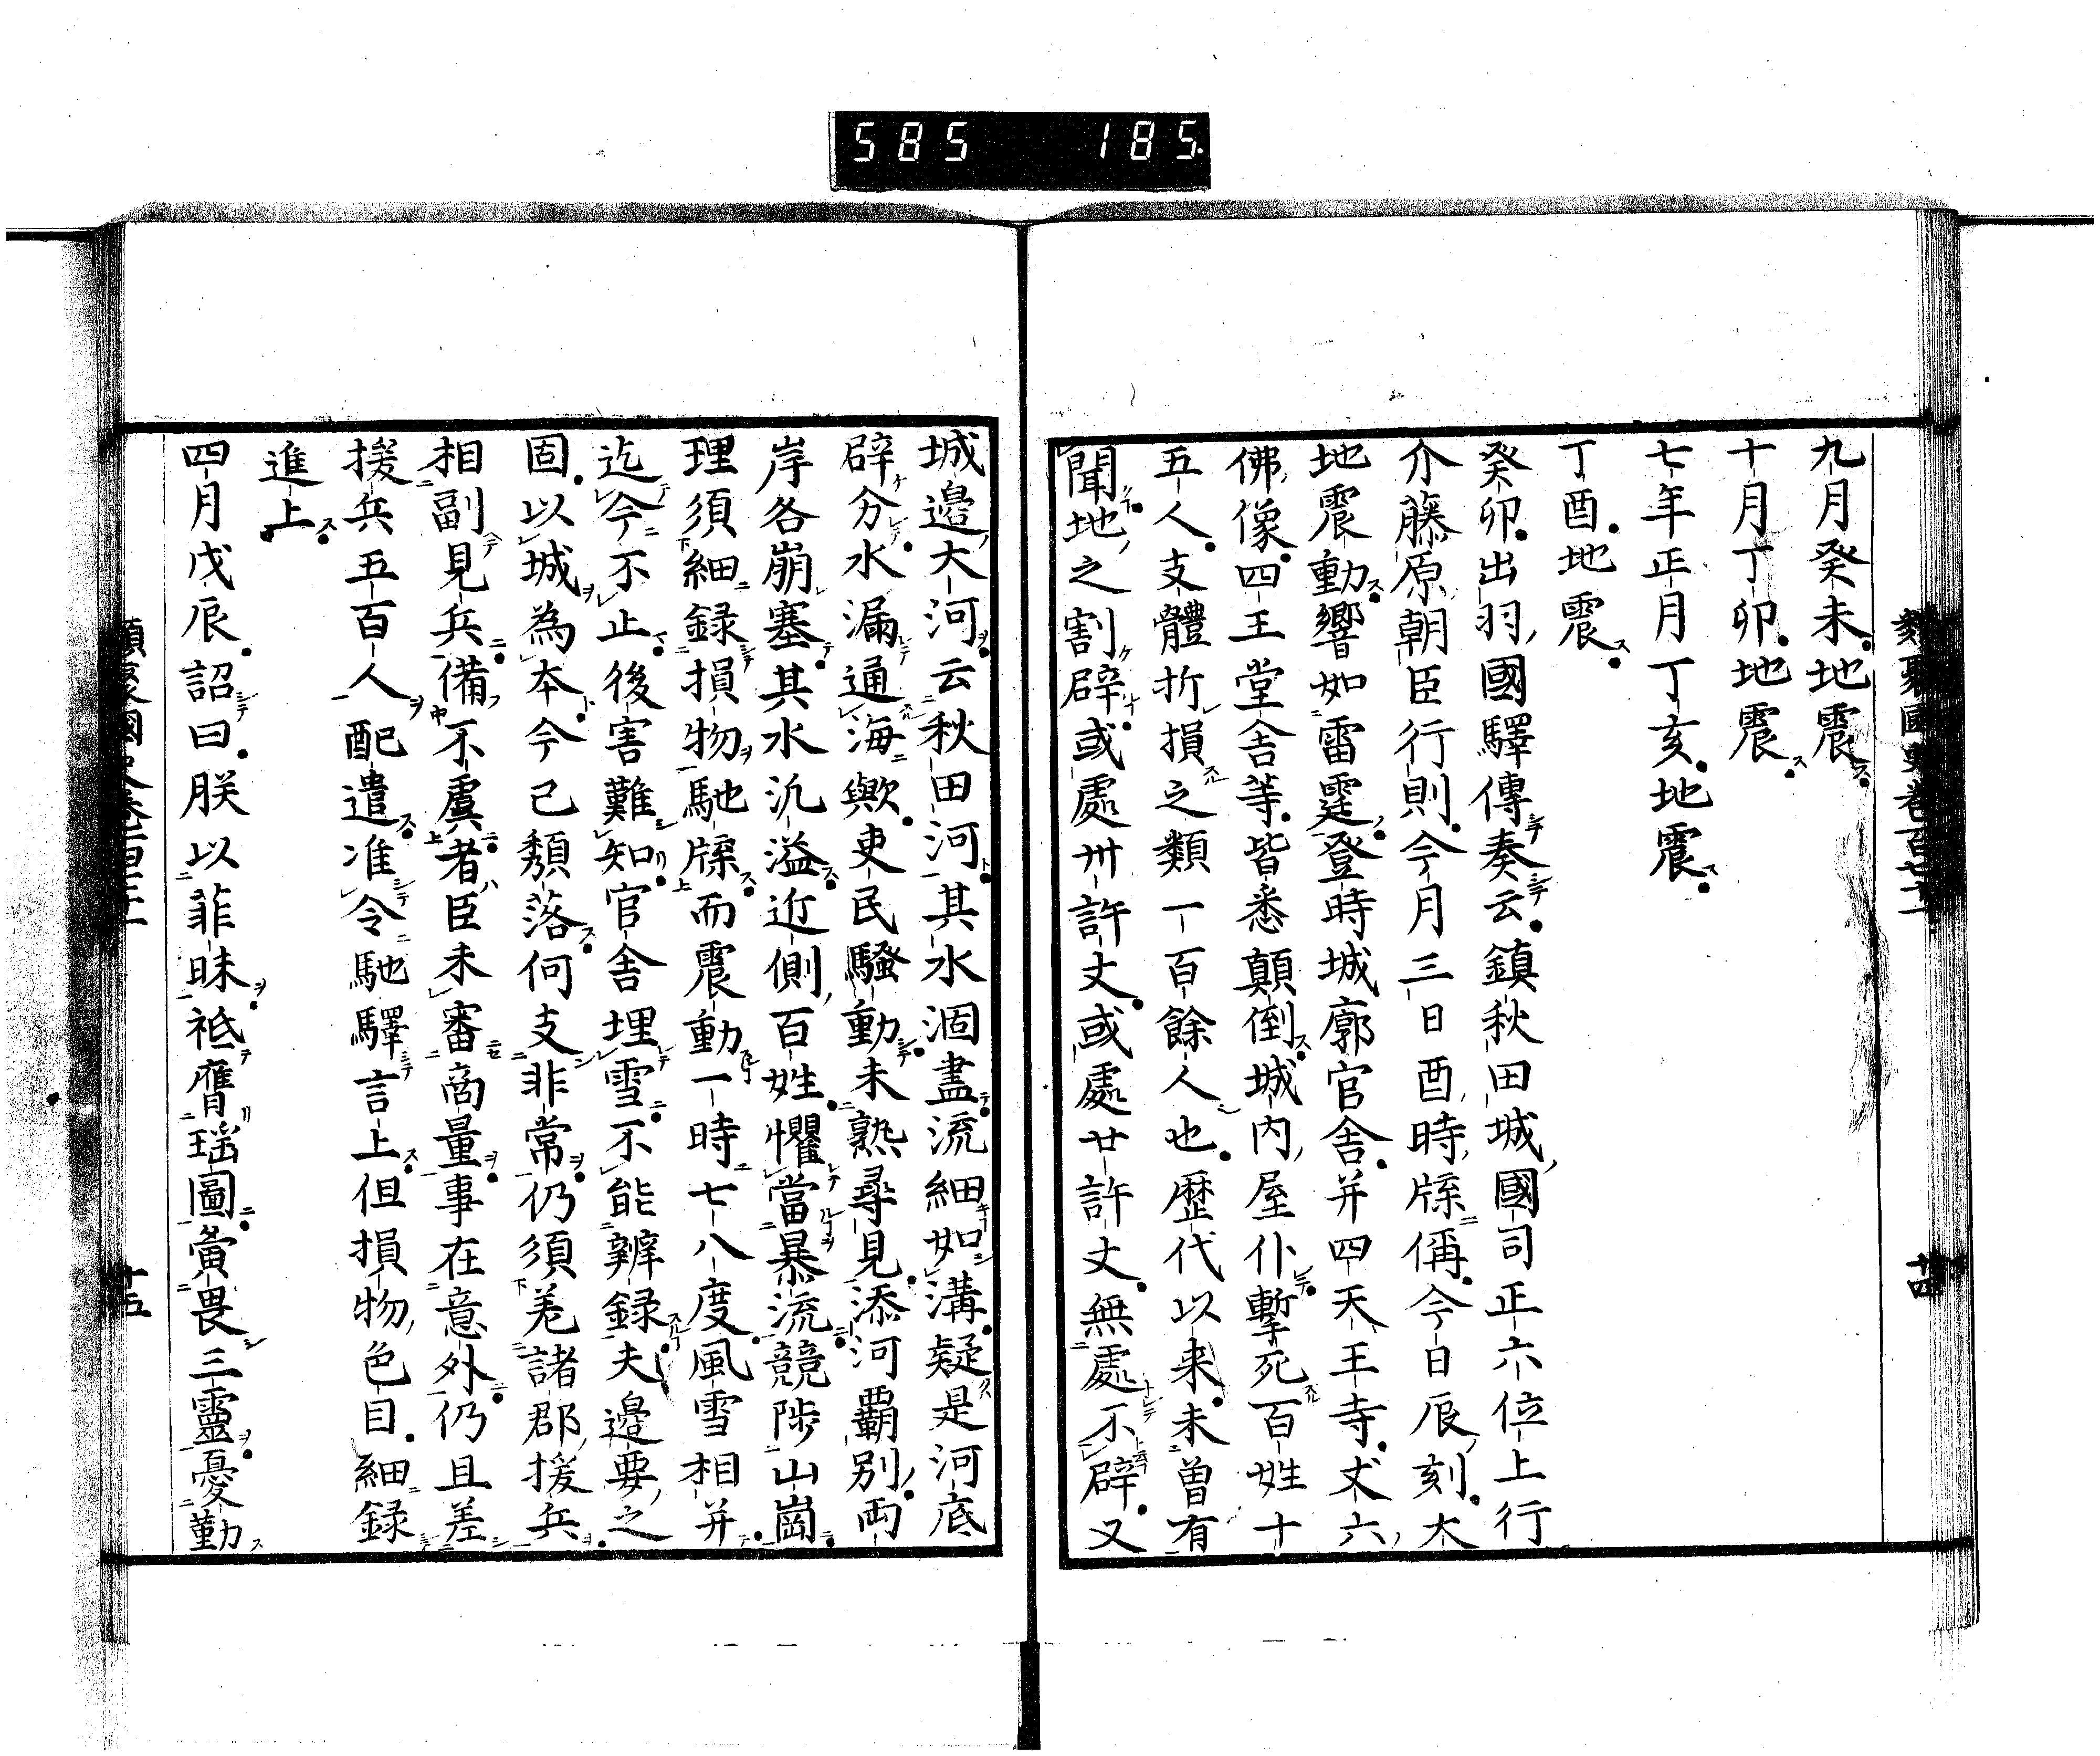 585 185
九月癸未地震
十月丁卯地震
七年正月丁亥地震
丁酉地震
癸卯出羽國驛傳奏云鎮秋田城國司正六位上行
介藤原朝臣行則今月三日酉時牒偁今日辰刻大
地震動響如雷霆登時城廓官舍并四天王寺丈六
佛像四王堂舍等皆悉顛倒城内屋仆擊死百姓十
五人支體折損之類一百餘人也歷代以来未曽有
聞地之割辟或處卅許丈或處廿許丈無處不辟又
城邊大河云秋田河其水涸盡流細如溝疑是河底
辟分水漏通海歟吏民騷動未熟尋見添河覇別両
岸各崩塞其水氾溢近側百姓懼當暴流競陟山崗
理須細録損物馳牒而震動一時七八度風雪相并
迄今不止後害難知官舍埋雪不能辨録夫邊要之
固以城為本今已頽落何支非常仍須差諸郡援兵
相副見兵備不虞者臣未審商量事在意外仍且差
援兵五百人配遣准令馳驛言上但損物色目細録
進上
四月戊辰詔曰朕以菲昧祗膺瑶圖寅畏三靈憂勤
十五